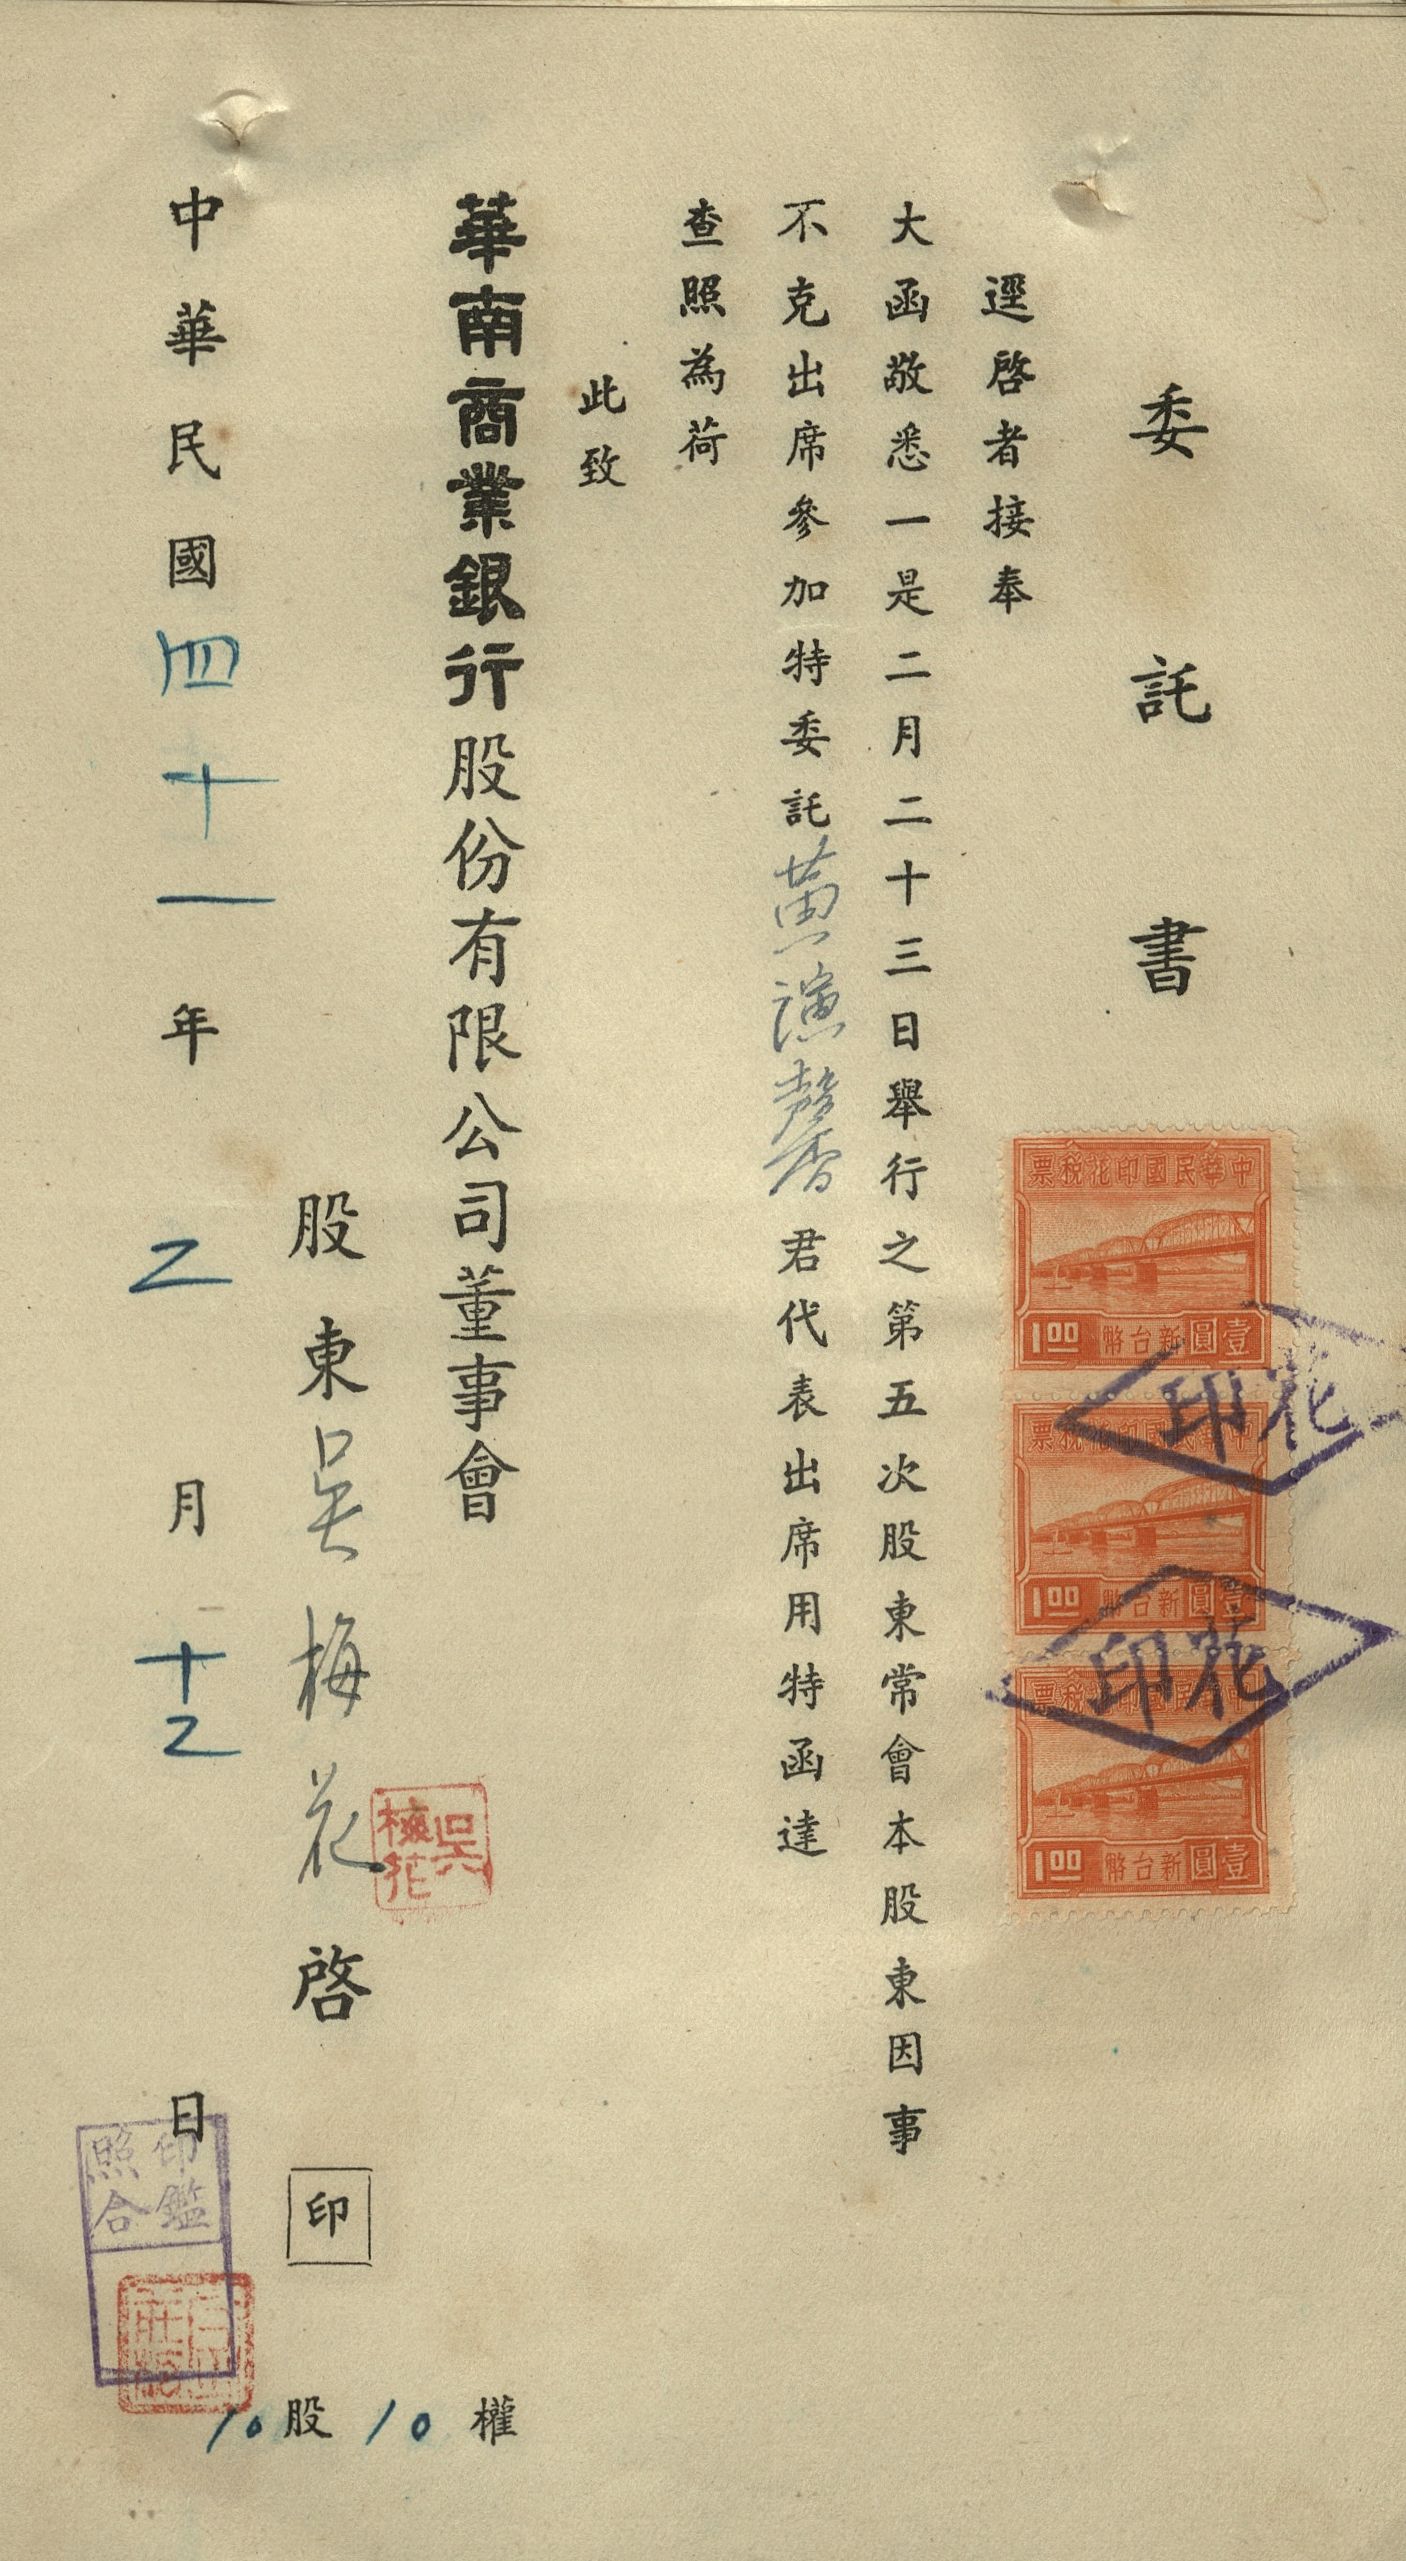 委託書
逕啓者接奉
大函敬悉一是二月二十三日舉行之第五次股東常會本股東因事
不克出席參加特委託黃演馨君代表出席用特函達
查照為荷
此致
華南商業銀行股份有限公司董事會
股東吳梅花啓 印
吳梅花
10股10權
中華民國四十一年乙月十乙日
印鑑照合
中華民國印花稅票
壹圓新台幣 1.00
中華民國印花稅票
壹圓新台幣 1.00
中華民國印花稅票
壹圓新台幣 1.00
印花
印花